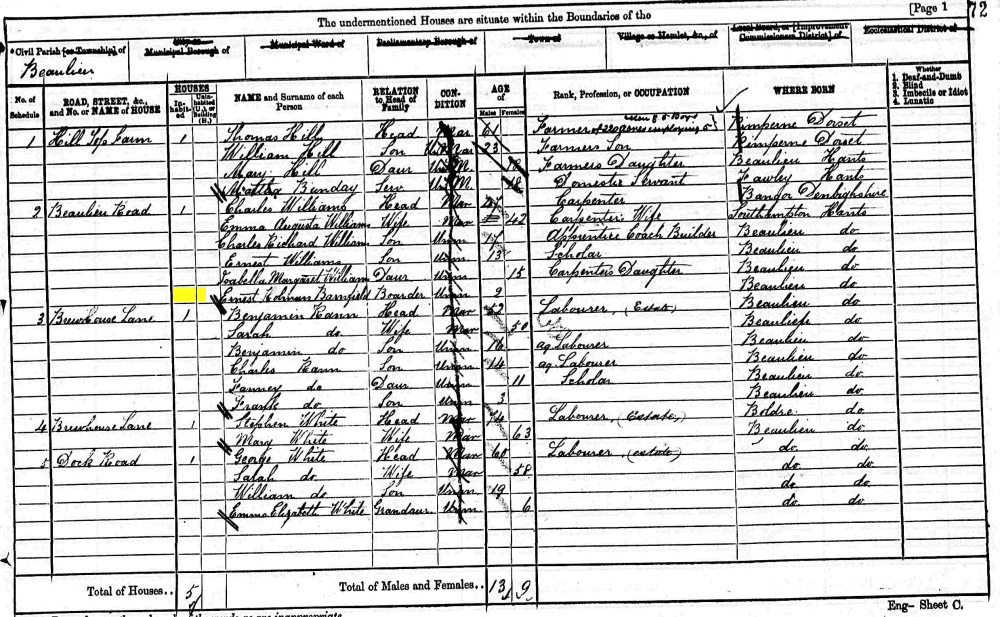 The undermentioned Houses are situate within the Boundaries of the
[Page 1
72
*Civil Parish [or Township] of
City or Municipal Borough of
Municipal Ward of
Parliamentary Borough of
Town of
Village or Hamlet, &c., of
Local Board, or [Improvement Commissioners District] of
Ecclesiastical District of
Beaulieu
No. of Schedule
ROAD, STREET, &c., and No. or NAME of HOUSE
HOUSES
Inhabited
Uninhabited (U.), or Building (B.)
NAME and Surname of each Person
RELATION to Head of Family
CONDITION
AGE of
Males
Females
Rank, Profession, or OCCUPATION
WHERE BORN
Whether
1. Deaf-and-Dumb
2. Blind
3. Imbecile or Idiot
4. Lunatic
1 Hill Top Farm 1 Thomas Hill Head Mar 61 Farmer of 220 acres employing 5 men & 3 Boys Pimperne Dorset
William Hill Son Unmar 23 Farmers Son Pimperne Dorset
Mary Hill Daur Un M. 18 Farmers Daughter Beaulieu Hants
Martha Bunday Serv Un M. 18 Domestic Servant Fawley Hants
2 Beaulieu Road 1 Charles Williams Head Mar 47 Carpenter Bangor Denbighshire
Emma Augusta Williams Wife Mar 42 Carpenter's Wife Southampton Hants
Charles Richard Williams Son Unm 17 Apprentice Coach Builder Beaulieu do.
Ernest Williams Son Unm 13 Scholar Beaulieu do.
Isabella Margaret Williams Daur Unm 15 Carpenter's Daughter Beaulieu do.
Ernest Holman Bamfield Boarder Unm 9 Beaulieu do.
3 Brewhouse Lane 1 Benjamin Kann Head Mar 52 Labourer, (Estate) Beaulieu do.
Sarah do. Wife Mar 50 Beaulieu do.
Benjamin do Son Unm 16 ag. Labourer Beaulieu do.
Charles Kann Son Unm 14 ag. Labourer Beaulieu do.
Fanney do Daur Unm 11 Scholar Beaulieu do.
Frank do. Son Unm 3 Beaulieu do.
4 Brewhouse Lane 1 Stephen White Head Mar 74 Labourer, (Estate) Boldre. do.
Mary White Wife Mar 63 Beaulieu do.
5 Dock Road 1 George White Head Mar 60 Labourer (estate) do. do.
Sarah do. Wife Mar 58 do. do.
William do Son Unm 19 do. do.
Emma Elizabeth White Grandaur Unm 6 do. do.
Total of Houses.. 5
Total of Males and Females.. 13 9
Eng– Sheet C.